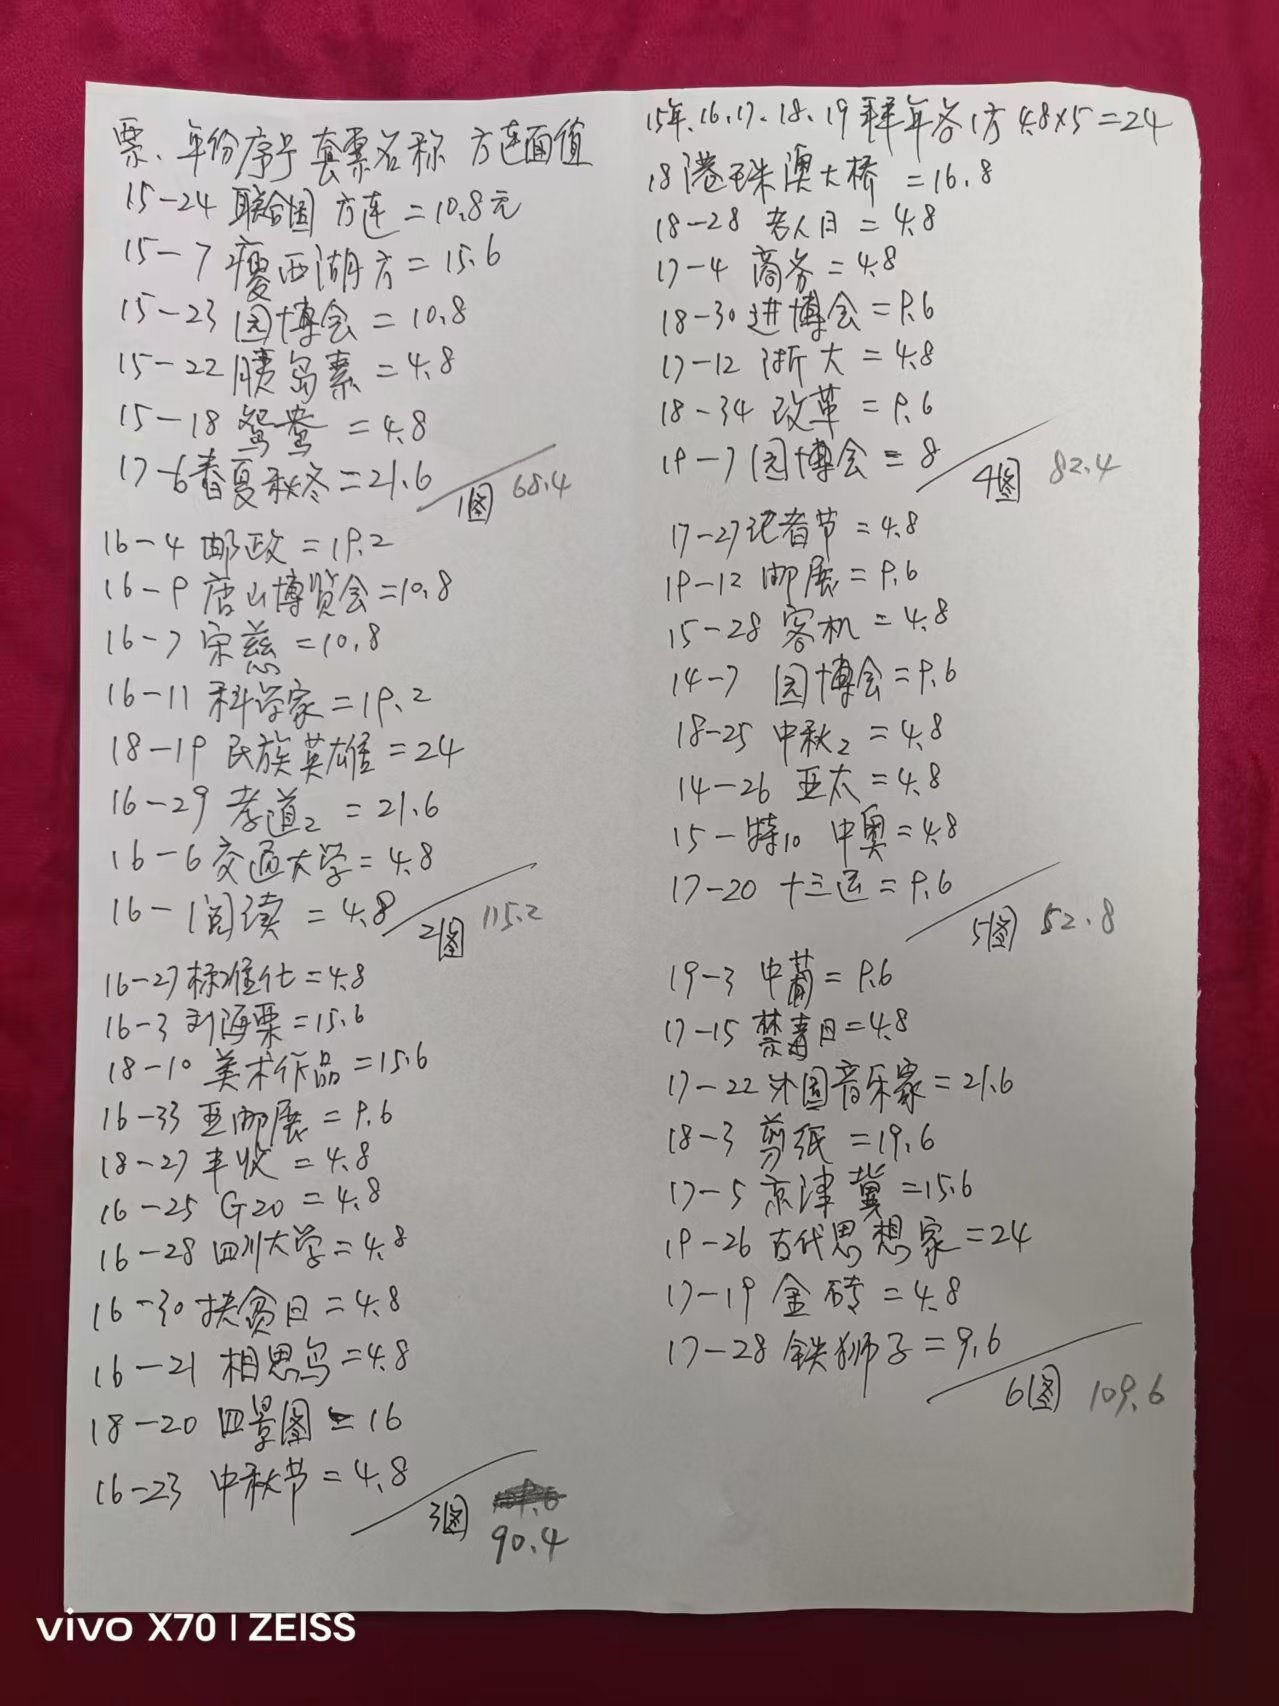 票、年份序号 套票名称 方连面值
15-24 联合国 方连=10.8元
15-7 瘦西湖方=15.6
15-23 园博会=10.8
15-22 胰岛素=4.8
15-18 鸳鸯=4.8
17-6春夏秋冬=21.6
1图 68.4
16-4 邮政=19.2
16-9 唐山博览会=10.8
16-7 宋慈=10.8
16-11 科学家=19.2
18-19 民族英雄=24
16-29 孝道2=21.6
16-6 交通大学=4.8
16-1阅读=4.8
2图 115.2
16-27标准化=4.8
16-3 刘海粟=15.6
18-10 美术作品=15.6
16-33 亚邮展=9.6
18-27 丰收=4.8
16-25 G20=4.8
16-28 四川大学=4.8
16-30扶贫日=4.8
16-21 相思鸟=4.8
18-20 四景图=16
16-23 中秋节=4.8
3图
90.4
15年.16.17.18.19拜年各1方 4.8×5=24
18港珠澳大桥=16.8
18-28 老人日=4.8
17-4 商务=4.8
18-30进博会=9.6
17-12 浙大=4.8
18-34 改革=9.6
19-7园博会=8
4图 82.4
17-27记者节=4.8
19-12 邮展=9.6
15-28 客机=4.8
14-7 园博会=9.6
18-25 中秋2=4.8
14-26 亚太=4.8
15-特10 中奥=4.8
17-20 十三运=9.6
5图 52.8
19-3 中葡=9.6
17-15 禁毒日=4.8
17-22外国音乐家=21.6
18-3 剪纸=19.6
17-5 京津冀=15.6
19-26 古代思想家=24
17-19 金砖=4.8
17-28 铁狮子=9.6
6图 109.6
vivo X70 | ZEISS